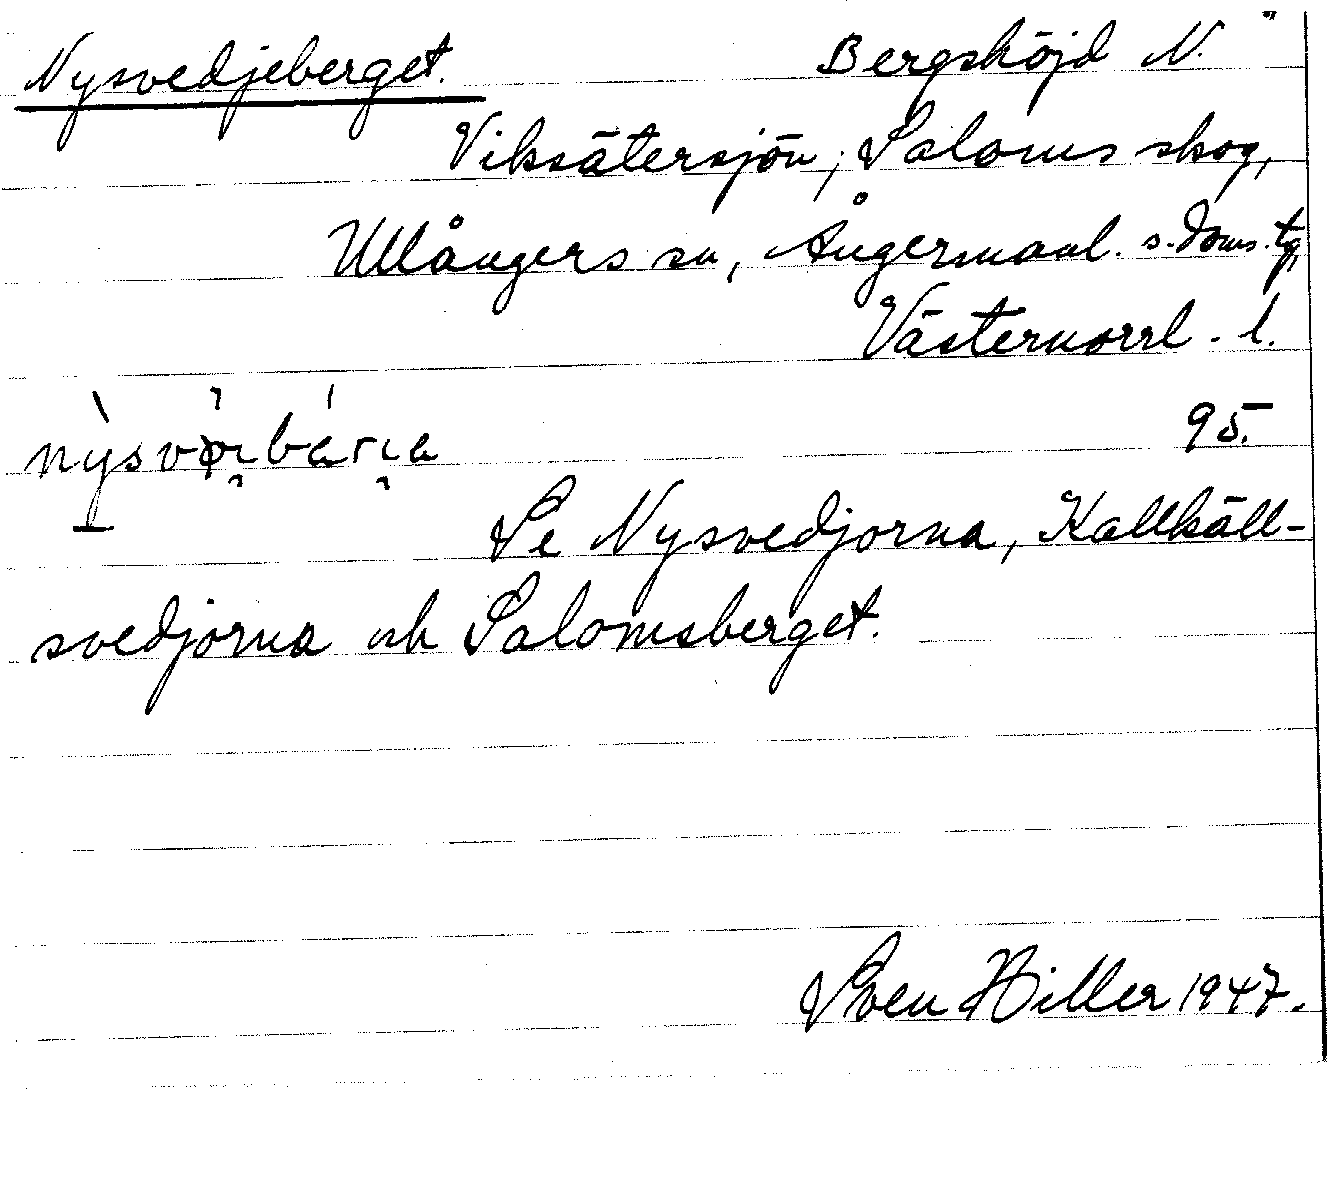 Nysvedjeberget. Bergshöjd N.
Viksätersjön, Saloms skog,
Ullångers sn, Ångermanl. s. doms. tg,
Västernorrl. l.
95.
Se Nysvedjorna, Kallkäll-
svedjorna och Salomsberget.
Sven Hiller 1947.